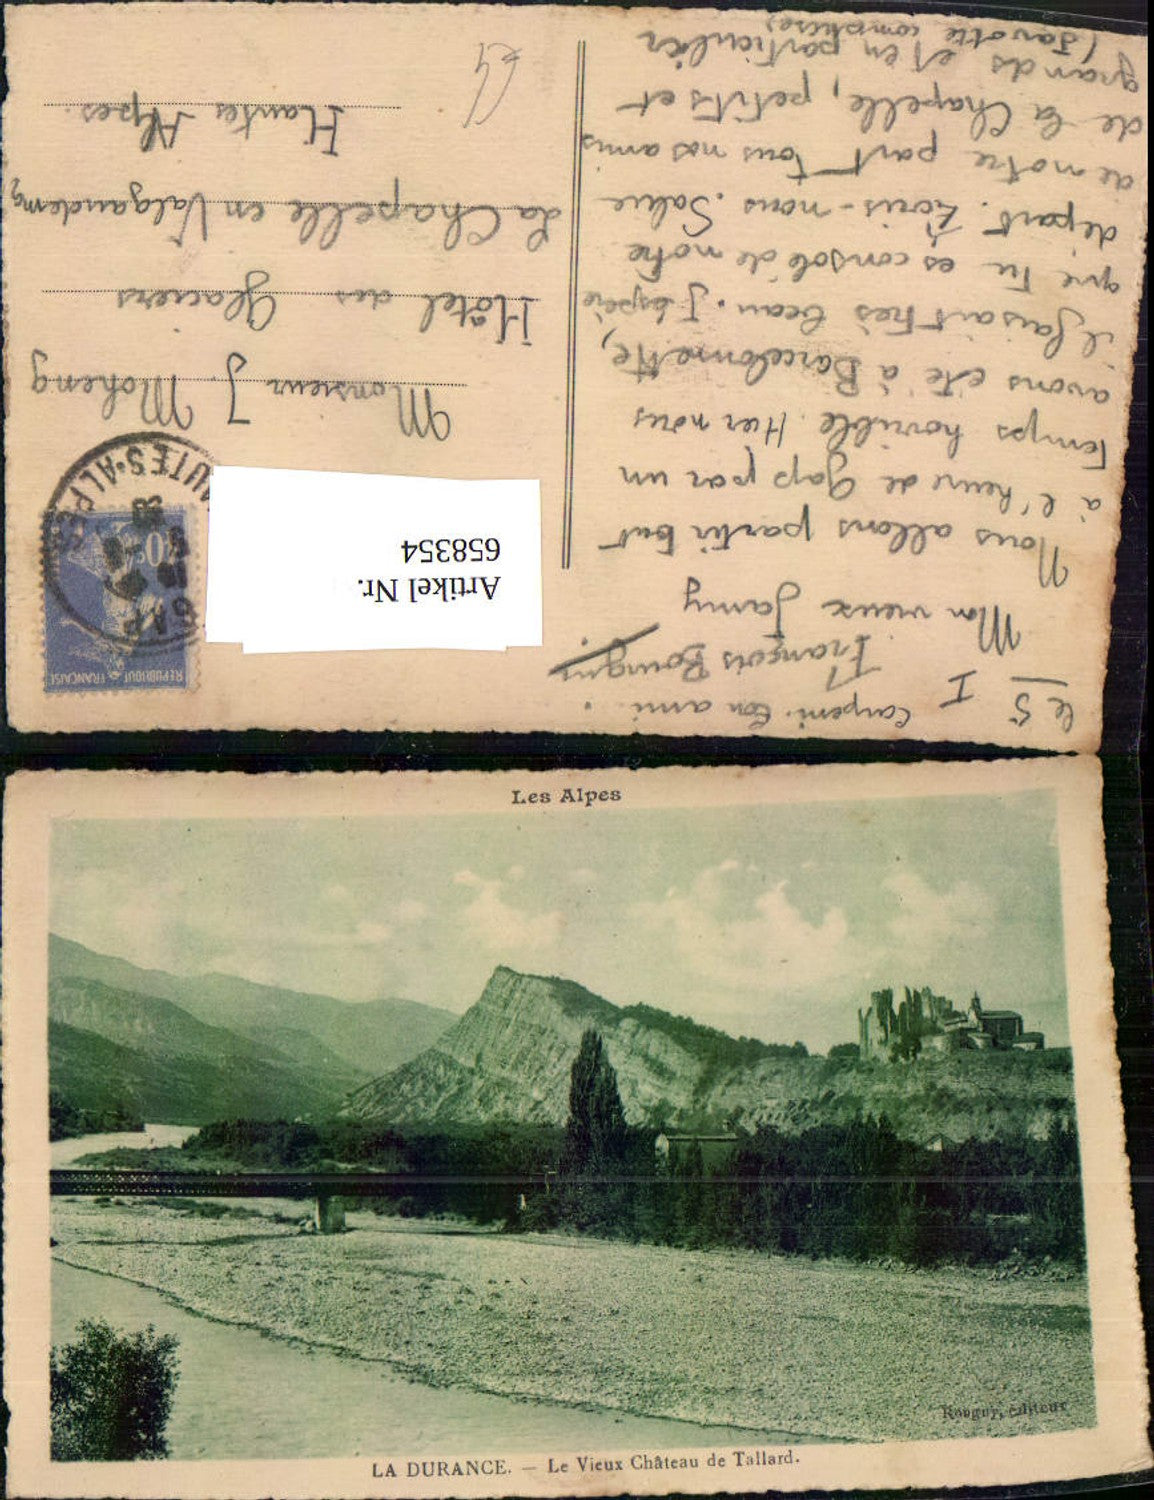 le 5
I
Carpeni. Ton ami.
François Bourgin
Mon vieux Jamy
Nous allons partir tout
à l'heure de Gap par un
temps horrible. Hier nous
avons été à Barcelonnette,
il faisait très beau. J'espère
que tu es consolé de notre
départ. Écris-nous. Salue
de notre part tous nos amis
de la Chapelle, petits et
grands et en particulier
(Javotte comprise)
Monsieur J. Moheng
Hôtel des Glaciers
La Chapelle en Valgaudemg
Hautes Alpes.
REPUBLIQUE FRANÇAISE
GAP
HAUTES-ALPES
Artikel Nr.
658354
Les Alpes
Rouguy, éditeur
LA DURANCE. — Le Vieux Château de Tallard.